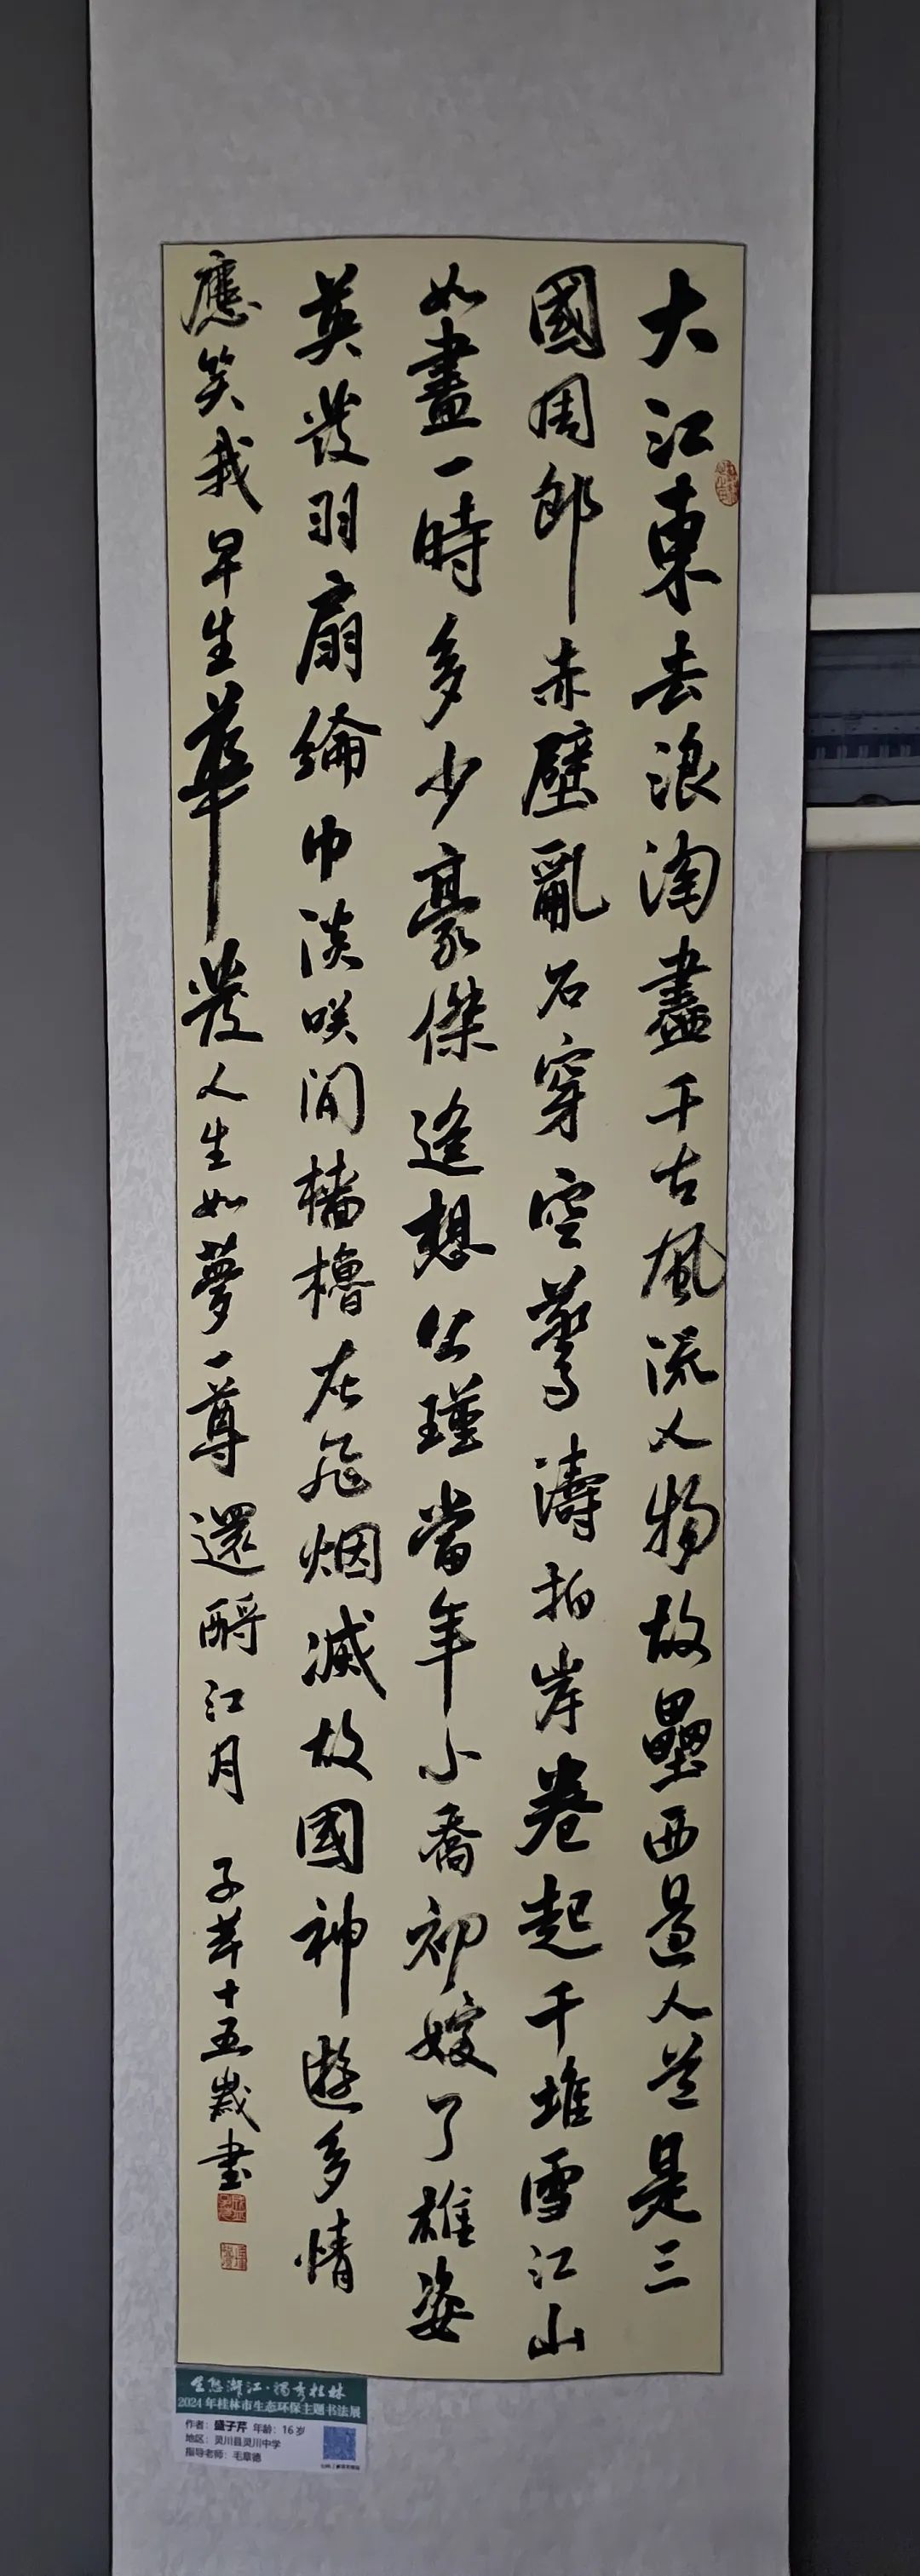 大江東去浪淘盡千古風流人物故壘西邊人道是三
國周郎赤壁亂石穿空驚濤拍岸卷起千堆雪江山
如畫一時多少豪傑遙想公瑾當年小喬初嫁了雄姿
英發羽扇綸巾談笑間檣櫓灰飛烟滅故國神遊多情
應笑我早生華發人生如夢一尊還酹江月 子芹十五歲書
生態灕江·獨秀桂林
2024年桂林市生态环保主题书法展
作者：盛子芹 年龄：16岁
地区：灵川县灵川中学
指导老师：毛章德